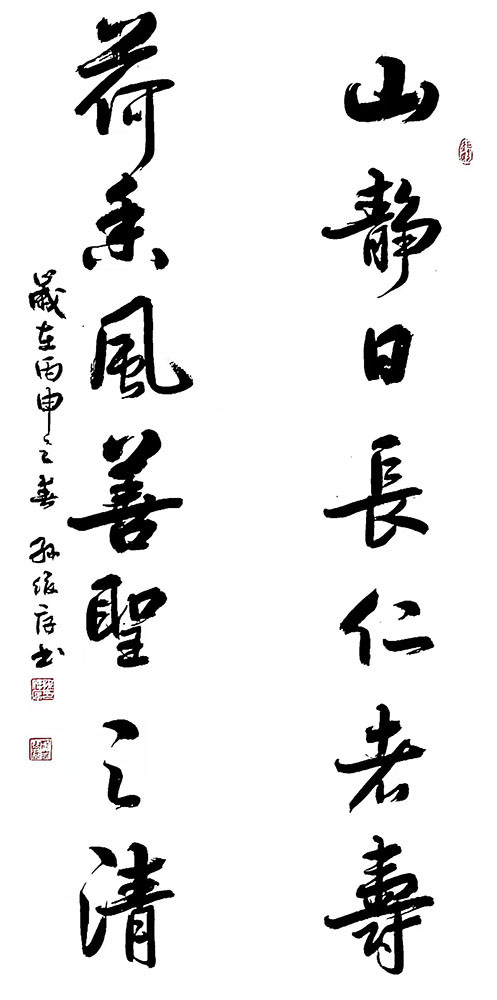 山靜日長仁者壽
荷香風善聖之清
歲在丙申之春 孫俊存書